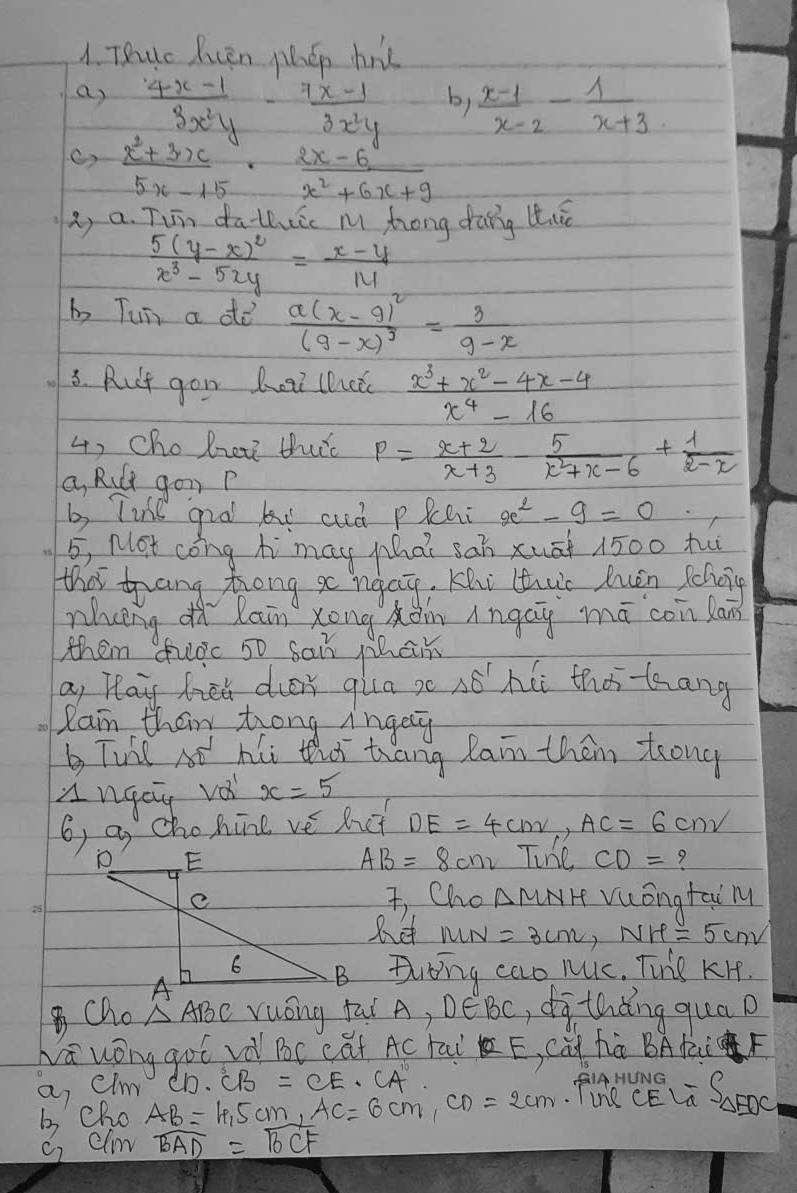 1. Thực hiện phép tính
a, \frac{4x-1}{3x^2y} - \frac{7x-1}{3x^2y} b, \frac{x-1}{x-2} - \frac{1}{x+3}
c, \frac{x^2+3x}{5x-15} . \frac{2x-6}{x^2+6x+9}
2, a. Tìm đa thức M trong đẳng thức
\frac{5(y-x)^2}{x^3-5xy} = \frac{x-y}{M}
b, Tìm a để \frac{a(x-9)^2}{(9-x)^3} = \frac{3}{9-x}
3. Rút gọn biểu thức \frac{x^3+x^2-4x-4}{x^4-16}
4, Cho biểu thức P = \frac{x+2}{x+3} - \frac{5}{x^2+x-6} + \frac{1}{2-x}
a, Rút gọn P
b, Tính giá trị của P khi x^2 - 9 = 0
5, Một công ti may phải sản xuất 1500 túi
thời trang trong x ngày. Khi thực hiện không
những đã làm xong sớm 1 ngày mà còn làm
thêm được 50 sản phẩm
a, Hãy biểu diễn qua x số túi thời trang
làm thêm trong 1 ngày
b, Tính số túi thời trang làm thêm trong
1 ngày với x = 5
6, a, Cho hình vẽ biết DE = 4cm, AC = 6cm
AB = 8cm Tính CD = ?
D E
C
A 6 B
7, Cho ΔMNH vuông tại M
biết MN = 3cm, NH = 5cm
Đường cao MK. Tính KH.
8, Cho Δ ABC vuông tại A, D∈BC, đg thẳng qua D
và vuông góc với BC cắt AC tại E, cắt tia BA tại F
a, c/m CD.CB = CE.CA
b, Cho AB = 4,5cm, AC = 6cm, CD = 2cm. Tính CE và S_{ΔEDC}
c, c/m \widehat{BAD} = \widehat{BCF}
GIA HƯNG